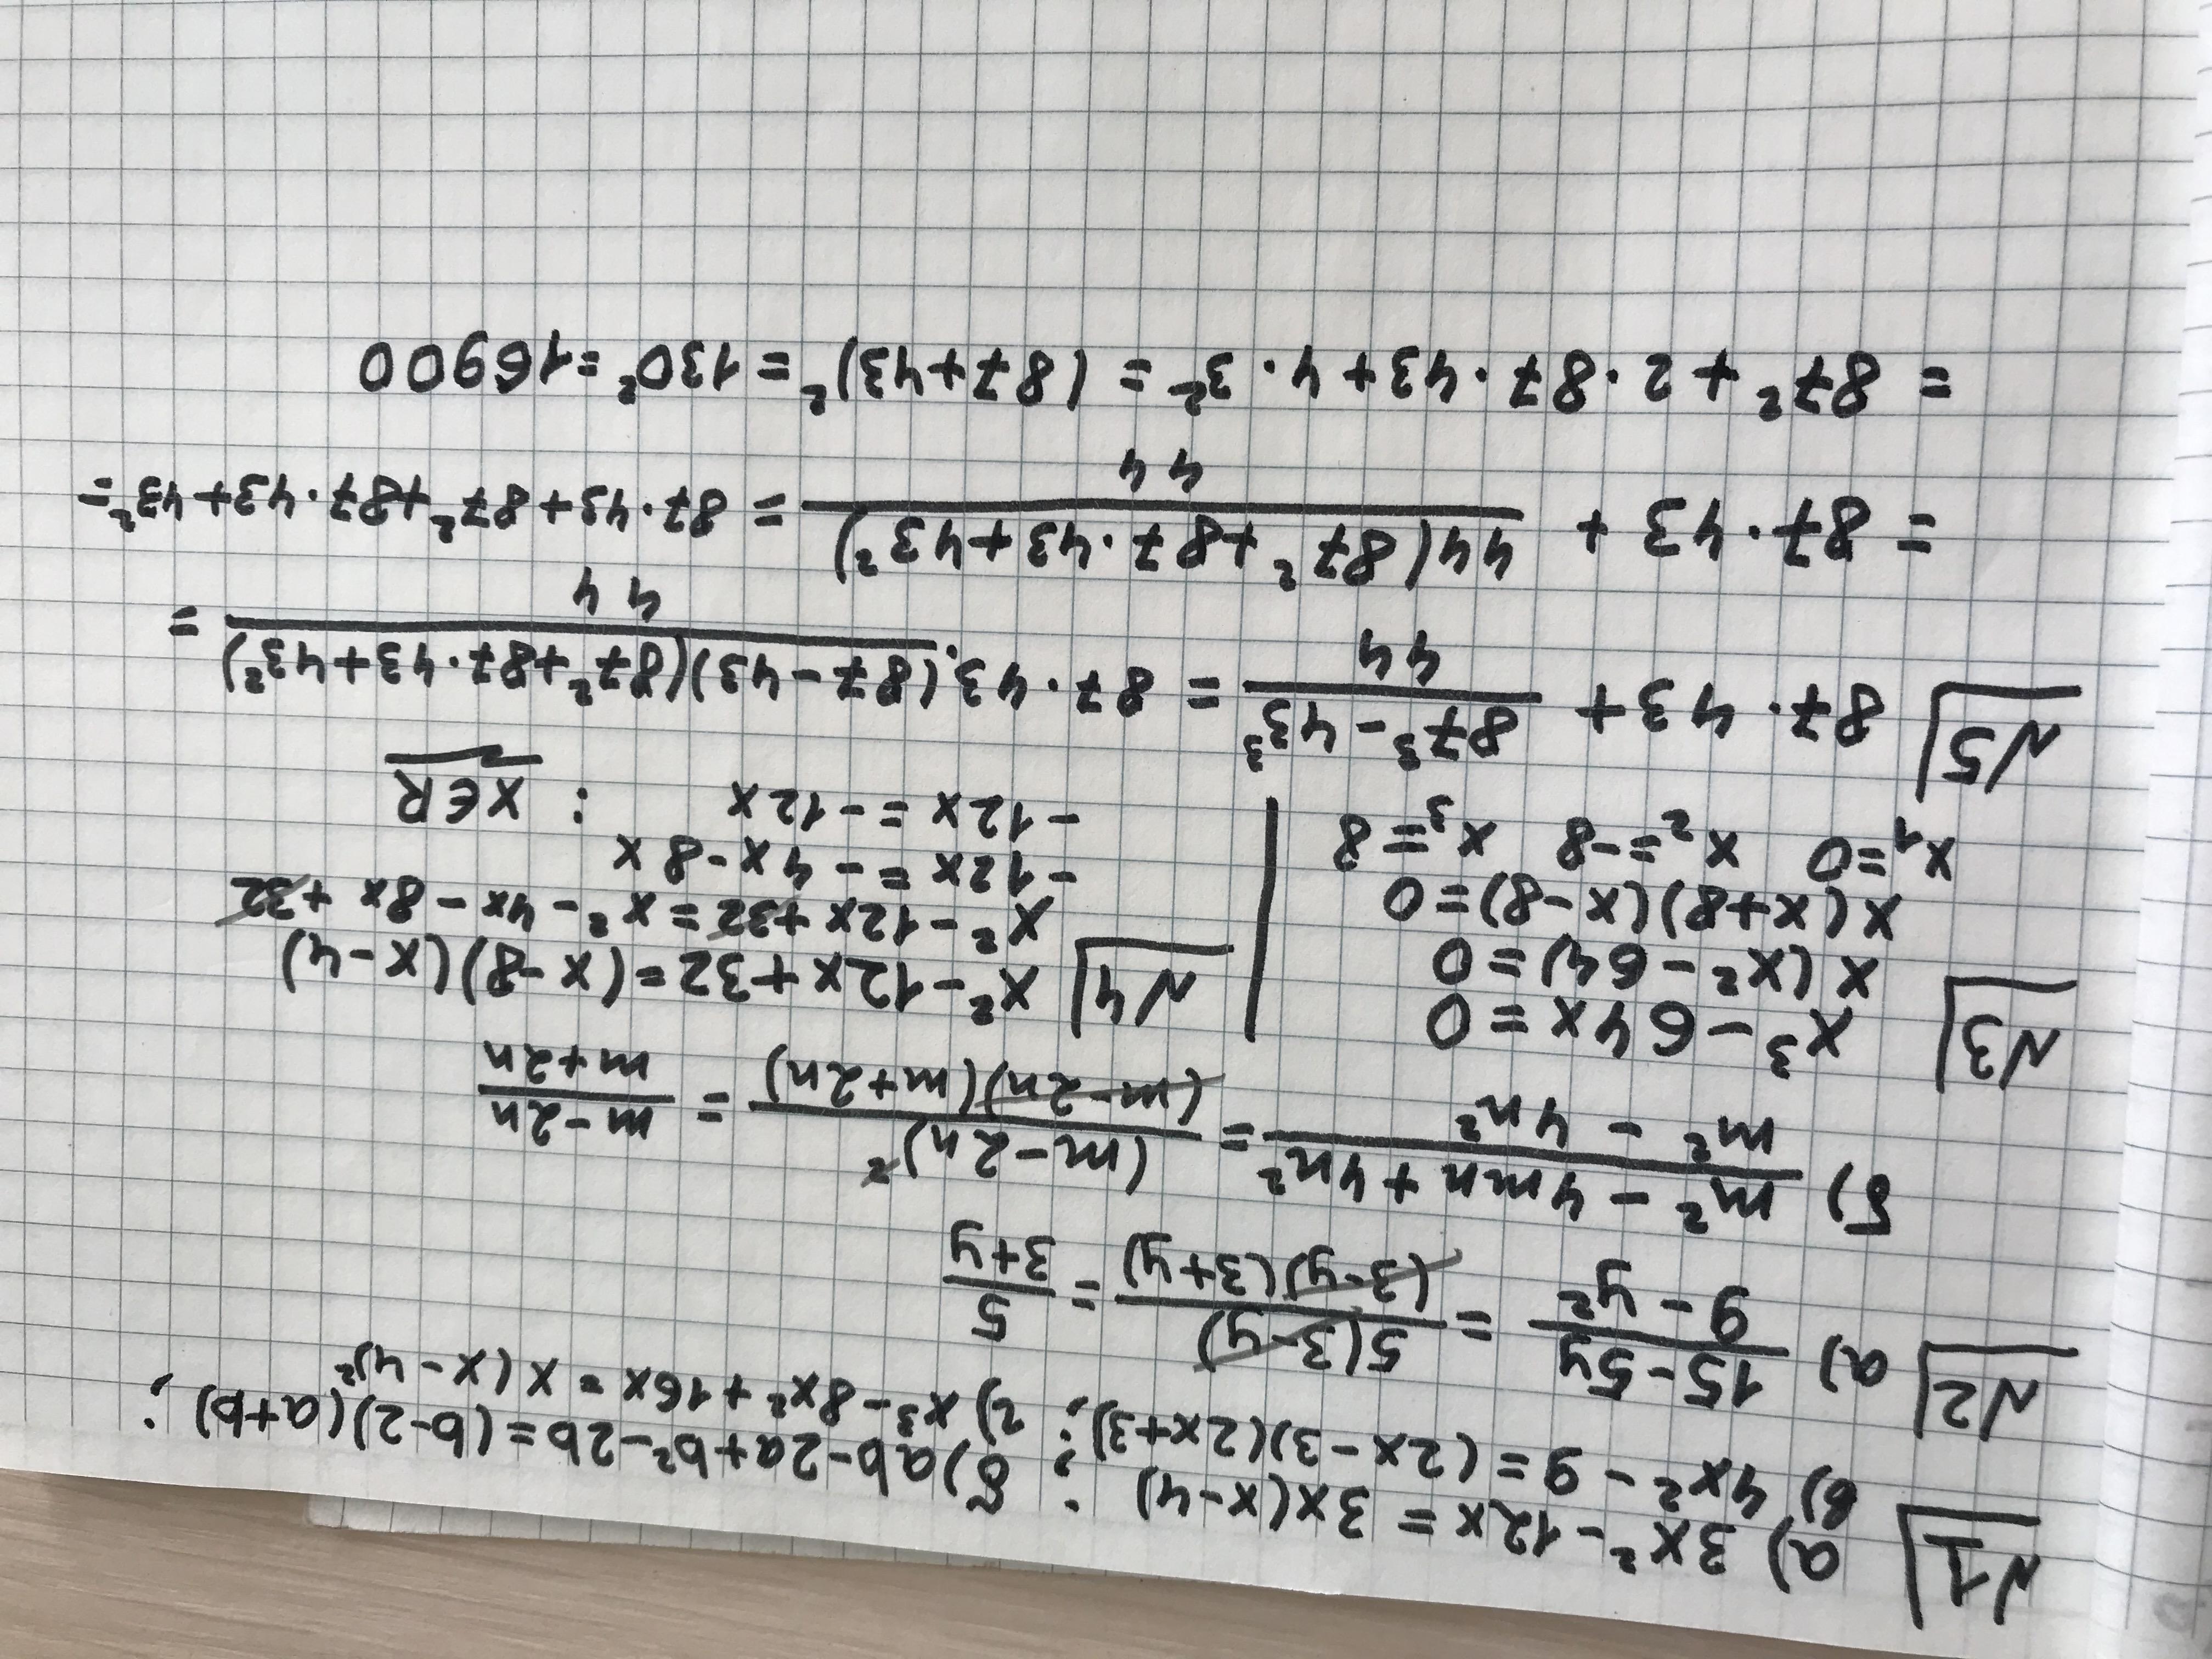 №1 а) 3x² - 12x = 3x(x-4) ; б) ab-2a+b²-2b=(b-2)(a+b) ;
в) 4x² - 9 = (2x-3)(2x+3); г) x³ - 8x² + 16x = x(x-4)²
№2 а) (15-5y)/(9-y²) = (5(3-y))/((3-y)(3+y)) = 5/(3+y)
б) (m² - 4mn + 4n²)/(m² - 4n²) = (m-2n)²/((m-2n)(m+2n)) = (m-2n)/(m+2n)
№3 x³ - 64x = 0
x(x² - 64) = 0
x(x+8)(x-8)=0
x₁=0 x₂=-8 x₃=8
№4 x²-12x+32=(x-8)(x-4)
x²-12x+32=x²-4x-8x+32
-12x = -4x-8x
-12x = -12x ; x∈R
№5 87·43+ (87³-43³)/44 = 87·43· ((87-43)(87²+87·43+43²))/44 =
= 87·43 + (44(87²+87·43+43²))/44 = 87·43+87²+87·43+43²=
= 87²+2·87·43+4·3² = (87+43)²=130²=16900